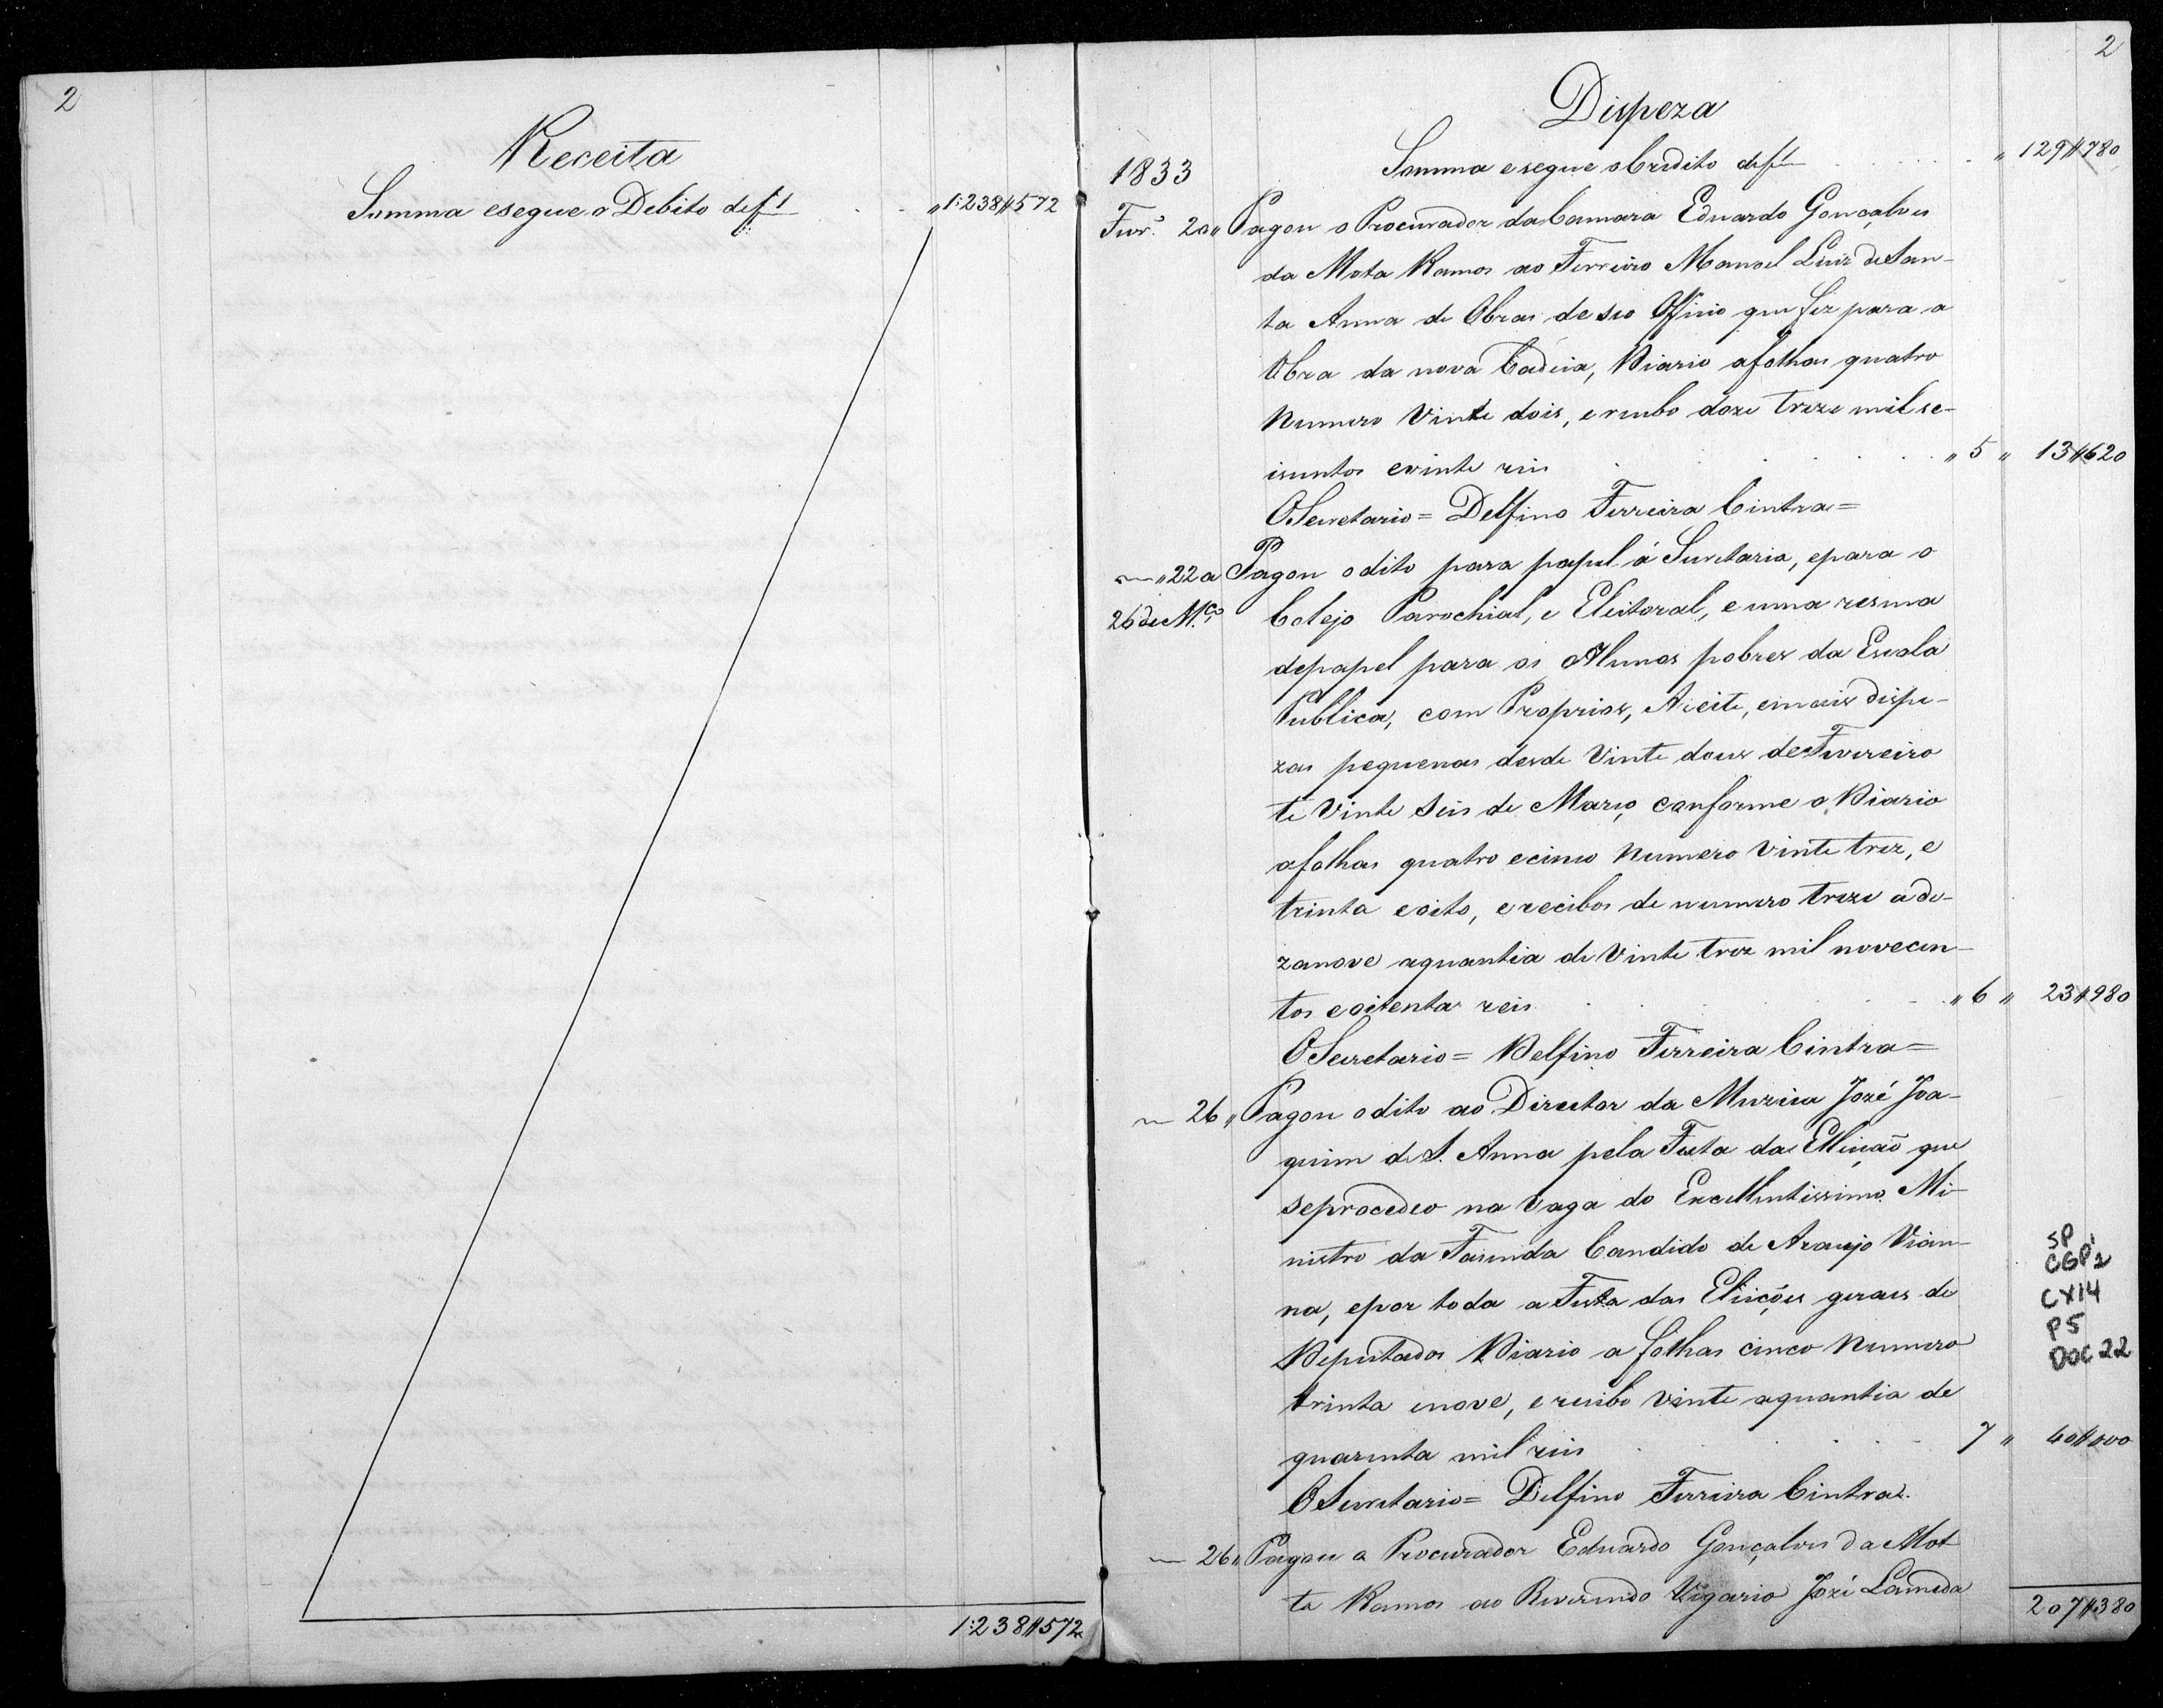 2
Receita
Somma esegue o Debito def 1 " 1:238$572
1:238$572
2
Dispeza
1833 Somma esegue o Credito def 1 " 129$780
Fevr.o 20 " Pagou o Procurador da Camara Eduardo Gonçalves
da Mota Ramos ao Ferreiro Manoel Luis de San-
ta Anna de Obras de seo Officio que fez para a
Obra da nova Cadeia, Diario afolhas quatro
Numero Vinte dois, e recibo doze treze mil se-
iscentos evinte reis " 5 " 13$620
O Secretario = Delfino Ferreira Cintra =
" 22 a Pagou odito para papel á Secretaria, epara o
26 de M.ço Cotejo Parochial, e Eleitoral, e uma resma
depapel para os Alunos pobres da Escola
Publica, com Proprios, Aceite, emais dispe-
zas pequenas desde Vinte dous de Fevereiro
te Vinte Seis de Março, conforme o Diario
afolhas quatro ecinco Numero Vinte trez, e
trinta eoito, erecibos de numero treze a de-
zanove aquantia de Vinte trez mil novecen-
tos eoitenta reis " 6 " 23$980
O Secretario = Delfino Ferreira Cintra =
26 " Pagou odito ao Director da Muzica Jozé Joa-
quim de S. Anna pela Festa da Elleição que
seprocedeo na Vaga do Excellentissimo Mi-
nistro da Fasenda Candido de Araujo Vian-
na, epor toda a Festa das Eleições geraes de
Deputados Diario a folhas cinco Numero
trinta enove, e recibo vinte aquantia de
quarenta mil reis 7 " 40$000
O Secretario = Delfino Ferreira Cintra.
26 " Pagou o Procurador Eduardo Gonçalves da Mot-
ta Ramos ao Reverendo Vigario Jozé
207$380
SP
CGP2
CX14
P5
DOC 22